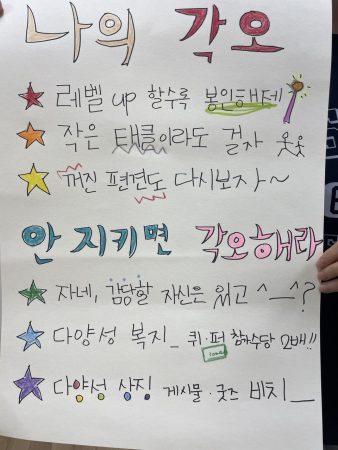 나의 각오
레벨 up 할수록 봉인해제
작은 태클이라도 걸자 웃웃
꺼진 편견도 다시보자~
안 지키면 각오해라
자네, 감당할 자신은 있고 ^__^?
다양성 복지_ 퀴·퍼 참가수당 2배!!
다양성 상징 게시물·굿즈 비치_